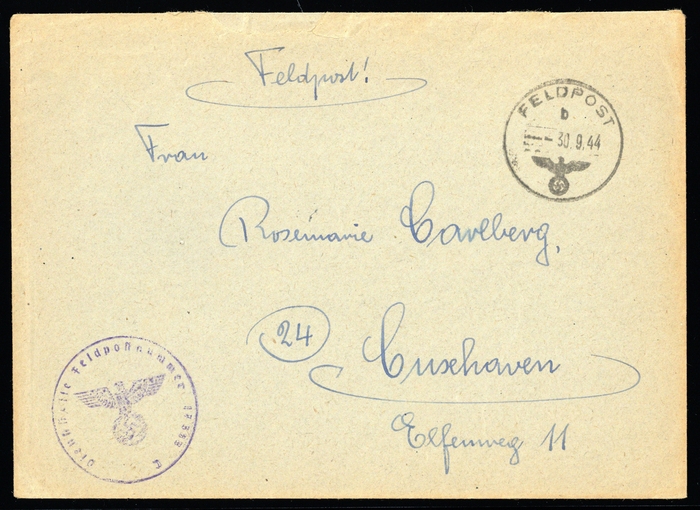 Feldpost!
FELDPOST
b
30.9.44
Frau
Rosemarie Carlberg,
24 Cuxhaven
Elfenweg 11
Dienststelle Feldpostnummer